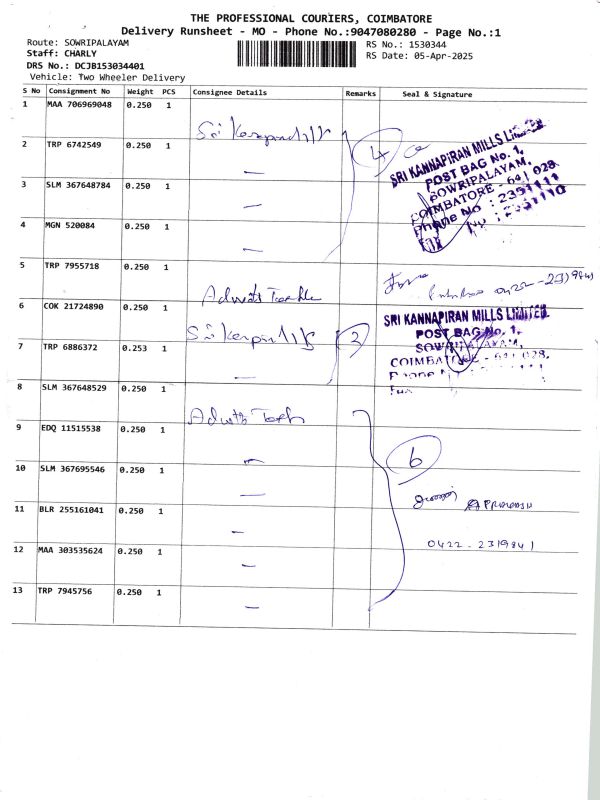 THE PROFESSIONAL COURIERS, COIMBATORE
Delivery Runsheet - MO - Phone No.:9047080280 - Page No.:1
Route: SOWRIPALAYAM
Staff: CHARLY
DRS No.: DCJB153034401
Vehicle: Two Wheeler Delivery
RS No.: 1530344
RS Date: 05-Apr-2025
S No Consignment No Weight PCS Consignee Details Remarks Seal & Signature
1 MAA 706969048 0.250 1
Sri
2 TRP 6742549 0.250 1 —
4
SRI KANNAPIRAN MILLS LIMITED
POST BAG No. 1,
SOWRIPALAYAM,
COIMBATORE - 641 028.
Phone No : 2351111
3 SLM 367648784 0.250 1 —
4 MGN 520084 0.250 1 —
5 TRP 7955718 0.250 1
6 COK 21724890 0.250 1
Sri
3
SRI KANNAPIRAN MILLS LIMITED
POST BAG No. 1,
SOWRIPALAYAM,
COIMBATORE - 641 028.
7 TRP 6886372 0.253 1 —
8 SLM 367648529 0.250 1
9 EDQ 11515538 0.250 1 —
6
10 SLM 367695546 0.250 1 —
11 BLR 255161041 0.250 1 —
0422-2319841
12 MAA 303535624 0.250 1 —
13 TRP 7945756 0.250 1 —